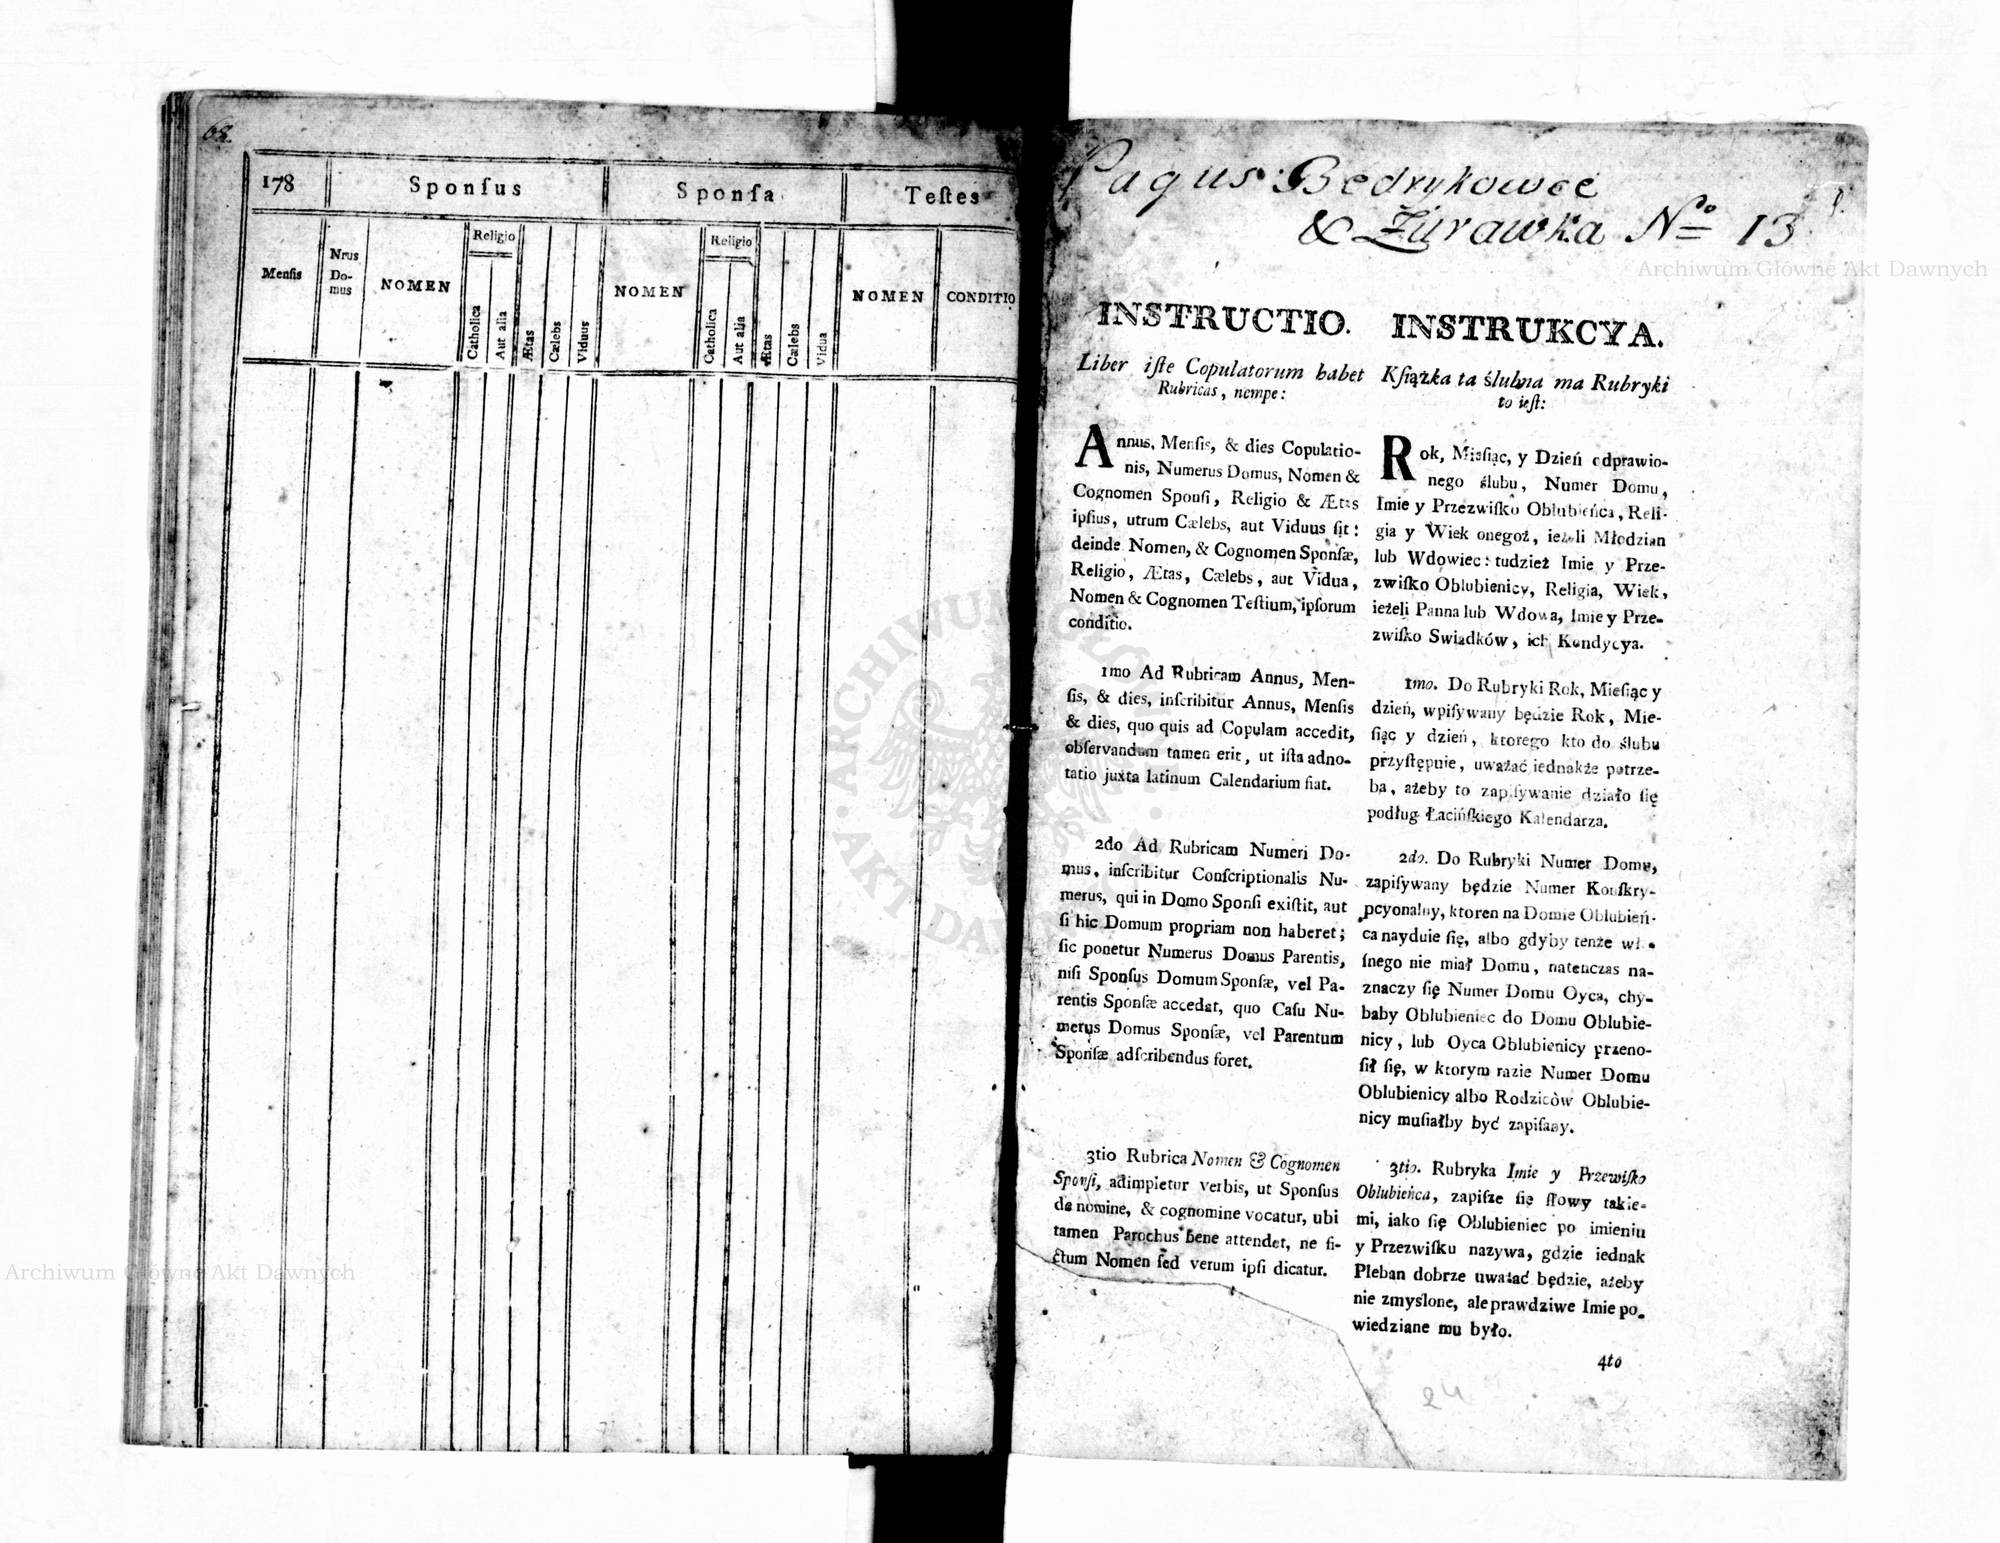 68.
178 Sponſus Sponſa Teſtes
Menſis Nrus Do-mus NOMEN Religio Catholica Aut alia Ætas Cælebs Viduus NOMEN Religio Catholica Aut alia Ætas Cælebs Vidua NOMEN CONDITIO
Pagus Bedrykowce
& Żurawka No 13
1.
Archiwum Główne Akt Dawnych
INSTRUCTIO.
Liber iſte Copulatorum habet
Rubricas, nempe:
Annus, Menſis, & dies Copulatio-
nis, Numerus Domus, Nomen &
Cognomen Sponſi, Religio & Ætas
ipſius, utrum Cælebs, aut Viduus ſit:
deinde Nomen, & Cognomen Sponſæ,
Religio, Ætas, Cælebs, aut Vidua,
Nomen & Cognomen Teſtium, ipſorum
conditio.
1mo Ad Rubricam Annus, Men-
ſis, & dies, inſcribitur Annus, Menſis
& dies, quo quis ad Copulam accedit,
obſervandum tamen erit, ut iſta adno-
tatio juxta latinum Calendarium fiat.
2do Ad Rubricam Numeri Do-
mus, inſcribitur Conſcriptionalis Nu-
merus, qui in Domo Sponſi exiſtit, aut
ſi hic Domum propriam non haberet;
ſic ponetur Numerus Domus Parentis,
niſi Sponſus Domum Sponſæ, vel Pa-
rentis Sponſæ accedat, quo Caſu Nu-
merus Domus Sponſæ, vel Parentum
Sponſæ adſcribendus foret.
3tio Rubrica Nomen & Cognomen
Sponſi, adimpletur verbis, ut Sponſus
de nomine, & cognomine vocatur, ubi
tamen Parochus bene attendet, ne fi-
ctum Nomen ſed verum ipſi dicatur.
INSTRUKCYA.
Kſiążka ta ślubna ma Rubryki
to ieſt:
Rok, Mieſiąc, y Dzień odprawio-
nego ślubu, Numer Domu,
Imie y Przezwiſko Oblubieńca, Reli-
gia y Wiek onegoż, ieżeli Młodzian
lub Wdowiec: tudzież Imie y Prze-
zwiſko Oblubienicy, Religia, Wiek,
ieżeli Panna lub Wdowa, Imie y Prze-
zwiſko Swiadków, ich Kondycya.
1mo. Do Rubryki Rok, Mieſiąc y
dzień, wpiſywany będzie Rok, Mie-
ſiąc y dzień, ktorego kto do ślubu
przyſtępuie, uważać iednakże potrze-
ba, ażeby to zapiſywanie działo ſię
podług Łacińſkiego Kalendarza.
2do. Do Rubryki Numer Domu,
zapiſywany będzie Numer Konſkry-
pcyonalny, ktoren na Domie Oblubień-
ca nayduie ſię, albo gdyby tenże wła-
ſnego nie miał Domu, natenczas na-
znaczy ſię Numer Domu Oyca, chy-
baby Oblubieniec do Domu Oblubie-
nicy, lub Oyca Oblubienicy przeno-
ſił ſię, w ktorym razie Numer Domu
Oblubienicy albo Rodziców Oblubie-
nicy muſiałby być zapiſany.
3tio. Rubryka Imie y Przezwiſko
Oblubieńca, zapiſze ſię ſłowy takie-
mi, iako ſię Oblubieniec po imieniu
y Przezwiſku nazywa, gdzie iednak
Pleban dobrze uważać będzie, ażeby
nie zmyślone, ale prawdziwe Imie po-
wiedziane mu było.
4to
24
Archiwum Główne Akt Dawnych